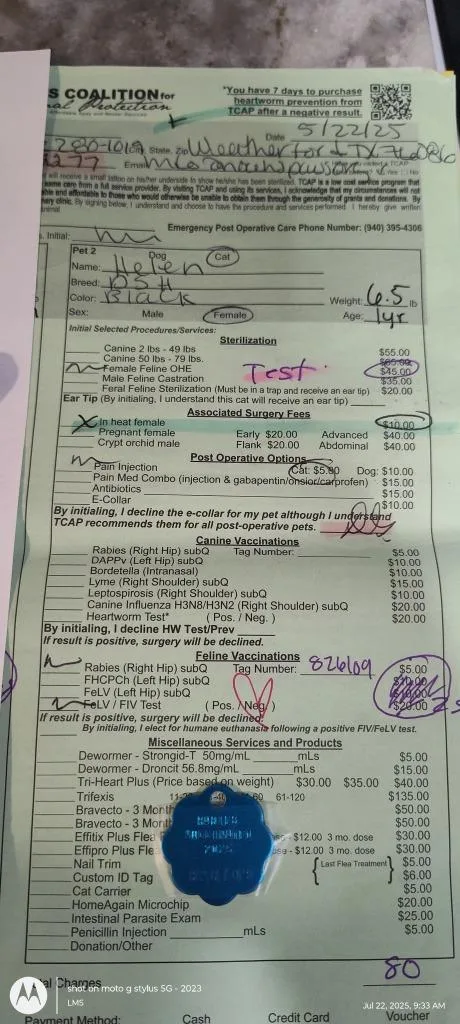 S COALITION for
al Protection
Affordable Spay and Neuter Services
*You have 7 days to purchase
heartworm prevention from
TCAP after a negative result.
Date 5/22/25
State, Zip Weatherford TX 76086
277 Email
will receive a small tattoo on his/her underside to show he/she has been sterilized. TCAP is a low cost service program that
same care from a full service provider. By visiting TCAP and using its services, I acknowledge that my circumstances will not
ble and affordable to those who would otherwise be unable to obtain them through the generosity of grants and donations. By
nary clinic. By signing below, I understand and choose to have the procedure and services performed. I hereby give written
animal
Emergency Post Operative Care Phone Number: (940) 395-4306
s. Initial:
Pet 2 Dog Cat
Name: Helen
Breed: DSH
Color: Black Weight: 6.5 lb
Sex: Male Female Age: 1yr
Initial Selected Procedures/Services:
Sterilization
Canine 2 lbs - 49 lbs $55.00
Canine 50 lbs - 79 lbs. $65.00
Female Feline OHE Test $45.00
Male Feline Castration $35.00
Feral Feline Sterilization (Must be in a trap and receive an ear tip) $20.00
Ear Tip (By initialing, I understand this cat will receive an ear tip)
Associated Surgery Fees
X In heat female $10.00
Pregnant female Early $20.00 Advanced $40.00
Crypt orchid male Flank $20.00 Abdominal $40.00
Post Operative Options
Pain Injection Cat: $5.00 Dog: $10.00
Pain Med Combo (injection & gabapentin/onsior/carprofen) $15.00
Antibiotics $15.00
E-Collar $10.00
By initialing, I decline the e-collar for my pet although I understand
TCAP recommends them for all post-operative pets.
Canine Vaccinations
Rabies (Right Hip) subQ Tag Number: $5.00
DAPPv (Left Hip) subQ $10.00
Bordetella (Intranasal) $10.00
Lyme (Right Shoulder) subQ $15.00
Leptospirosis (Right Shoulder) subQ $10.00
Canine Influenza H3N8/H3N2 (Right Shoulder) subQ $20.00
Heartworm Test* (Pos. / Neg.) $20.00
By initialing, I decline HW Test/Prev
If result is positive, surgery will be declined.
Feline Vaccinations
Rabies (Right Hip) subQ Tag Number: 826109 $5.00
FHCPCh (Left Hip) subQ
FeLV (Left Hip) subQ
FeLV / FIV Test (Pos. / Neg.) $20.00
If result is positive, surgery will be declined.
By initialing, I elect for humane euthanasia following a positive FIV/FeLV test.
Miscellaneous Services and Products
Dewormer - Strongid-T 50mg/mL mLs $5.00
Dewormer - Droncit 56.8mg/mL mLs $15.00
Tri-Heart Plus (Price based on weight) $30.00 $35.00 $40.00
Trifexis 61-120 $135.00
Bravecto - 3 Month $50.00
Bravecto - 3 Month $50.00
Effitix Plus Flea $12.00 3 mo. dose $30.00
Effipro Plus Fle $12.00 3 mo. dose $30.00
Nail Trim Last Flea Treatment $5.00
Custom ID Tag $6.00
Cat Carrier $5.00
HomeAgain Microchip $20.00
Intestinal Parasite Exam $25.00
Penicillin Injection mLs $5.00
Donation/Other
VACCINATED
2025
80
tal Charges
Payment Method: Cash Credit Card Voucher
shot on moto g stylus 5G - 2023
LMS
Jul 22, 2025, 9:33 AM